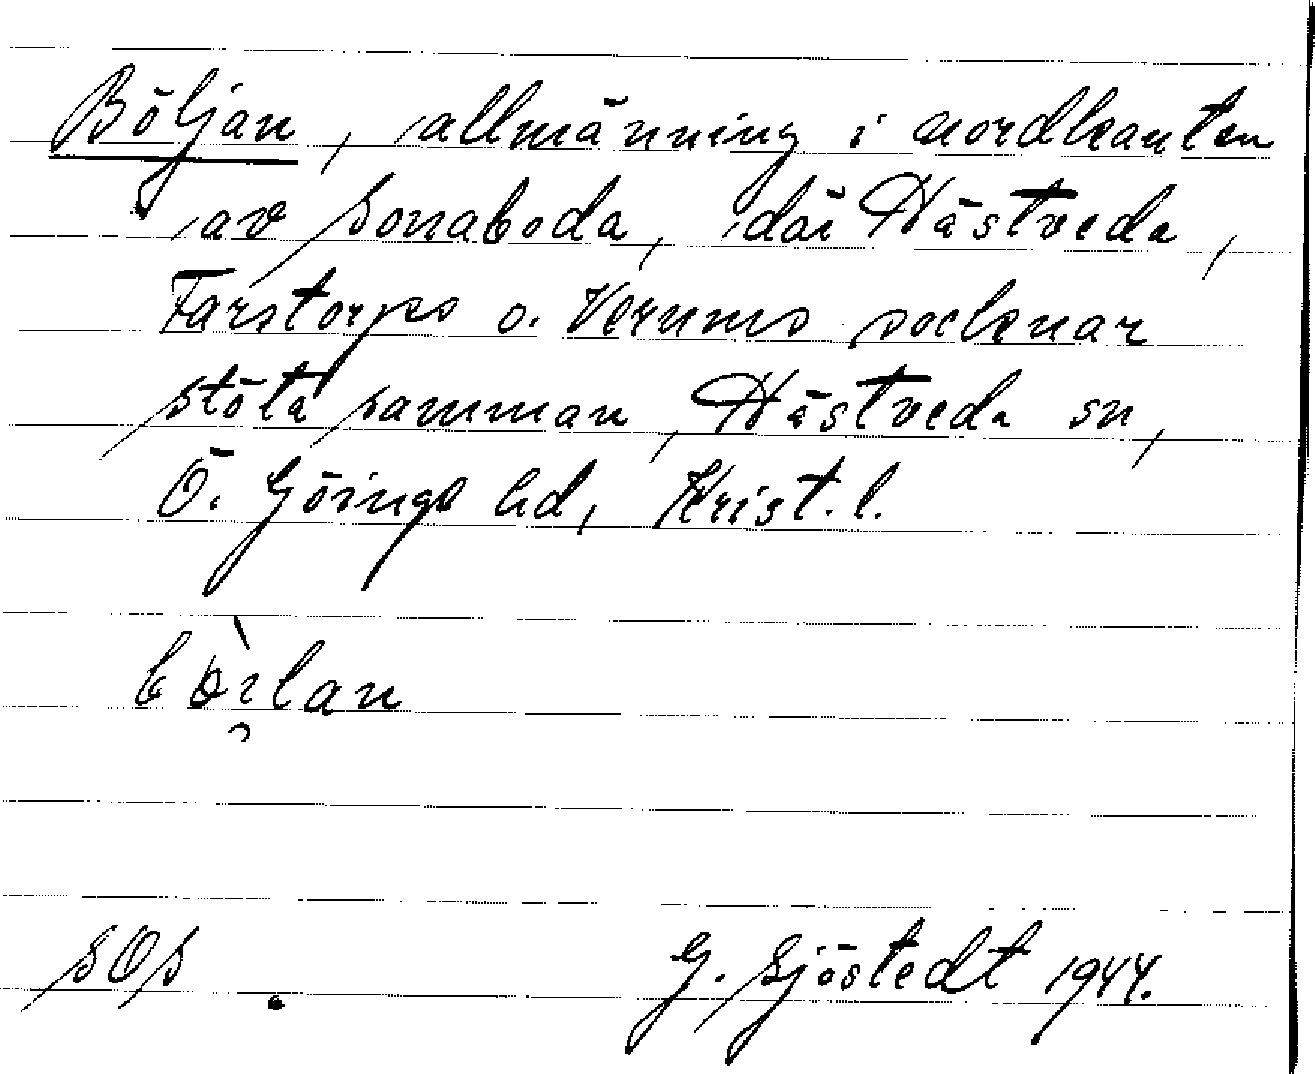 Böljan, allmänning i nordkanten
av Sonnaboda, där Hästveda,
Farstorps o. Verums socknar
stöta samman, Hästveda sn,
Ö. Göinge hd, Krist. l.
SOs G. Sjöstedt 1944.